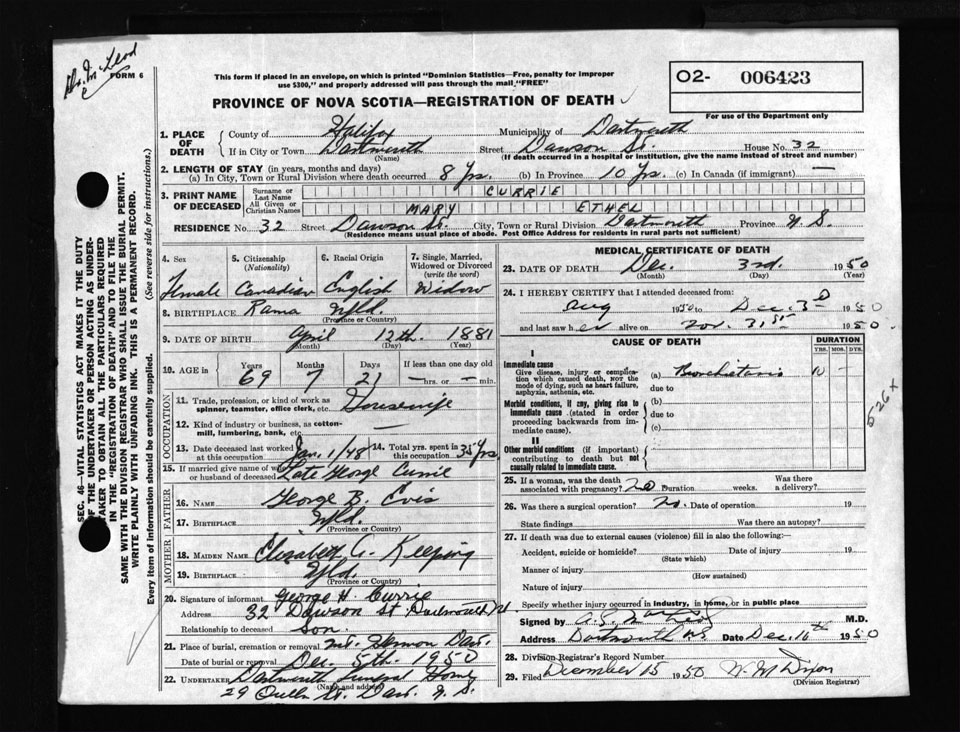 Dr. McLeod
FORM 6
This form if placed in an envelope, on which is printed "Dominion Statistics—Free, penalty for improper
use $300," and properly addressed will pass through the mail "FREE"
O2- 006423
For use of the Department only
PROVINCE OF NOVA SCOTIA—REGISTRATION OF DEATH
1. PLACE OF DEATH
County of Halifax Municipality of Dartmouth
If in City or Town Dartmouth Street Dawson St. House No. 32
(Name) (If death occurred in a hospital or institution, give the name instead of street and number)
2. LENGTH OF STAY (in years, months and days)
(a) In City, Town or Rural Division where death occurred 8 Yrs. (b) In Province 10 Yrs. (c) In Canada (if immigrant) —
3. PRINT NAME OF DECEASED
Surname or Last Name CURRIE
All Given or Christian Names MARY ETHEL
RESIDENCE No. 32 Street Dawson St. City, Town or Rural Division Dartmouth Province N.S.
(Residence means usual place of abode. Post Office Address for residents in rural parts not sufficient)
4. Sex 5. Citizenship (Nationality) 6. Racial Origin 7. Single, Married, Widowed or Divorced (write the word)
Female Canadian English Widow
8. BIRTHPLACE Rama Nfld.
(Province or Country)
9. DATE OF BIRTH April 12th. 1881
(Month) (Day) (Year)
10. AGE in Years Months Days If less than one day
69 7 21 — hrs. or — min.
OCCUPATION
11. Trade, profession, or kind of work as spinner, teamster, office clerk, etc. Housewife
12. Kind of industry or business, as cotton-mill, lumbering, bank, etc. —
13. Date deceased last worked at this occupation Jan. 1/48 14. Total yrs. spent in this occupation 35 Yrs
15. If married give name of wife or husband of deceased Late George Currie
FATHER
16. NAME George B.
17. BIRTHPLACE Nfld.
(Province or Country)
MOTHER
18. MAIDEN NAME Elizabeth A. Keeping
19. BIRTHPLACE Nfld.
(Province or Country)
20. Signature of informant George H. Currie
Address 32 Dawson St Dartmouth N
Relationship to deceased son.
21. Place of burial, cremation or removal Mt. Hermon Dart.
Date of burial or removal Dec. 5th. 1950
22. UNDERTAKER Dartmouth Funeral Home
(Name and address)
29 Queen St. Dart. N.S.
MEDICAL CERTIFICATE OF DEATH
23. DATE OF DEATH Dec. 3rd. 1950
(Month) (Day) (Year)
24. I HEREBY CERTIFY that I attended deceased from:
Aug 1950 to Dec. 3d 1950
and last saw her alive on Nov. 31st 1950.
CAUSE OF DEATH
DURATION
YRS. MOS. DYS.
I
Immediate cause
Give disease, injury or complication which caused death, NOT the mode of dying, such as heart failure, asphyxia, asthenia, etc.
(a) 10 —
due to
Morbid conditions, if any, giving rise to immediate cause (stated in order proceeding backwards from immediate cause).
(b)
due to
(c)
II
Other morbid conditions (if important) contributing to death but not causally related to immediate cause.
526 x
25. If a woman, was the death associated with pregnancy? no Duration weeks. Was there a delivery?
26. Was there a surgical operation? no. Date of operation 19
State findings Was there an autopsy?
27. If death was due to external causes (violence) fill in also the following:
Accident, suicide or homicide? Date of injury 19
(State which)
Manner of injury
(How sustained)
Nature of injury
Specify whether injury occurred in industry, in home, or in public place
Signed by M.D.
Address Dartmouth NS Date Dec. 16th 1950
28. Division Registrar's Record Number
29. Filed December 15 1950 Dixon
(Division Registrar)
SEC. 46—VITAL STATISTICS ACT MAKES IT THE DUTY
OF THE UNDERTAKER OR PERSON ACTING AS UNDER-
TAKER TO OBTAIN ALL THE PARTICULARS REQUIRED
IN THE "REGISTRATION OF DEATH" AND TO FILE THE
SAME WITH THE DIVISION REGISTRAR WHO SHALL ISSUE THE BURIAL PERMIT.
WRITE PLAINLY WITH UNFADING INK. THIS IS A PERMANENT RECORD.
Every item of information should be carefully supplied. (See reverse side for instructions.)